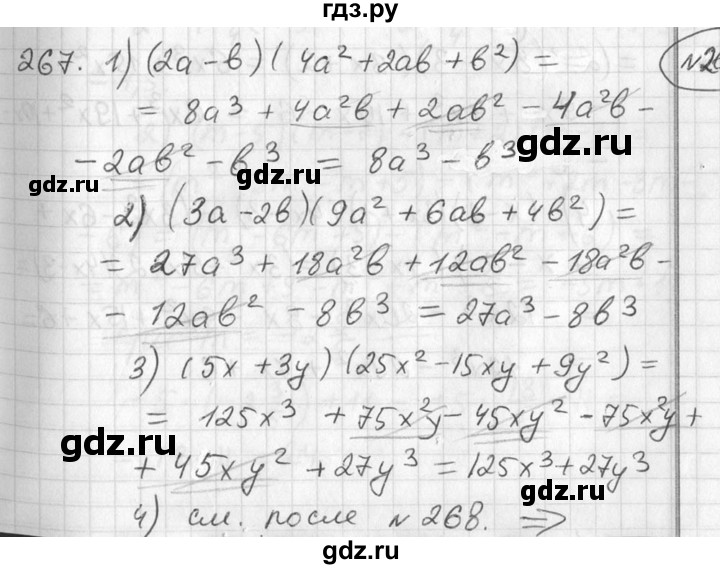 гдз.ру
267. 1) (2a - b)(4a² + 2ab + b²) =
№26
= 8a³ + 4a²b + 2ab² - 4a²b -
- 2ab² - b³ = 8a³ - b³
gdz.ru
gdz.ru
2) (3a - 2b)(9a² + 6ab + 4b²) =
= 27a³ + 18a²b + 12ab² - 18a²b -
- 12ab² - 8b³ = 27a³ - 8b³
3) (5x + 3y)(25x² - 15xy + 9y²) =
= 125x³ + 75x²y - 45xy² - 75x²y +
gdz.ru
+ 45xy² + 27y³ = 125x³ + 27y³
gdz.ru
4) см. после №268. ⇒
gdz.ru